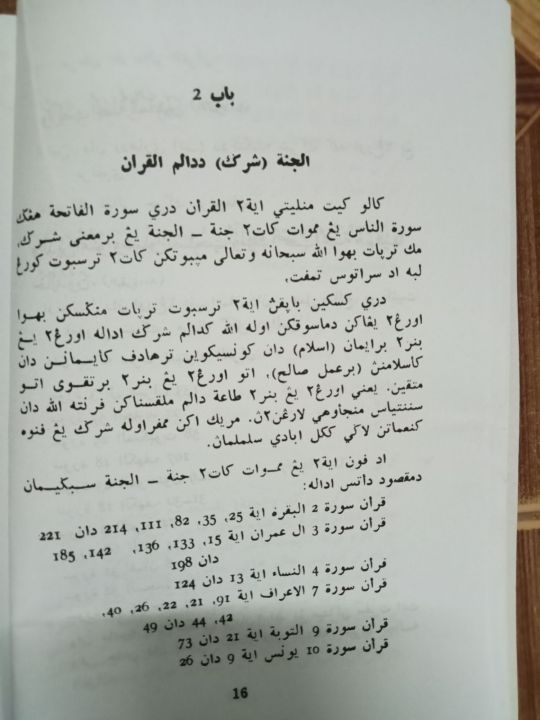 باب 2
الجنة (شرݢ) ددالم القرأن
كالو كيت منليتي اية٢ القرأن دري سورة الفاتحة هڠݢ
سورة الناس يڠ مموات كات٢ جنة ــ الجنة يڠ برمعنى شرݢ،
مك ترپات بهوا الله سبحانه وتعالى مپبوتكن كات٢ ترسبوت كورڠ
لبه اد سراتوس تمفت.
دري كسكين باپقڽ اية٢ ترسبوت ترپات منݢسكن بهوا
اورڠ٢ يڠاكن دماسوقكن اوله الله كدالم شرݢ اداله اورڠ٢ يڠ
بنر٢ برايمان (اسلام) دان كونسيكوين ترهادف كايمانن دان
كاسلامنڽ (برعمل صالح)، اتو اورڠ٢ يڠ بنر٢ برتقوى اتو
متقين. يعني اورڠ٢ يڠ بنر٢ طاعة دالم ملقسناكن فرنته الله دان
سنتياس منجاوهي لارڠن٢ڽ. مريك اكن ممفراوله شرݢ يڠ فنوه
كنعماتن لاݢي ككل ابادي سلملمان.
اد فون اية٢ يڠ مموات كات٢ جنة ــ الجنة سبݢيمان
دمقصود داتس اداله:
قرأن سورة 2 البقره اية 25، 35، 82، 111، 214 دان 221
قرأن سورة 3 ال عمران اية 15، 133، 136، 142، 185
دان 198
قرأن سورة 4 النساء اية 13 دان 124
قرأن سورة 7 الاعراف اية 91، 21، 22، 26، 40،
42، 44 دان 49
قرأن سورة 9 التوبة اية 21 دان 73
قرأن سورة 10 يونس اية 9 دان 26
16